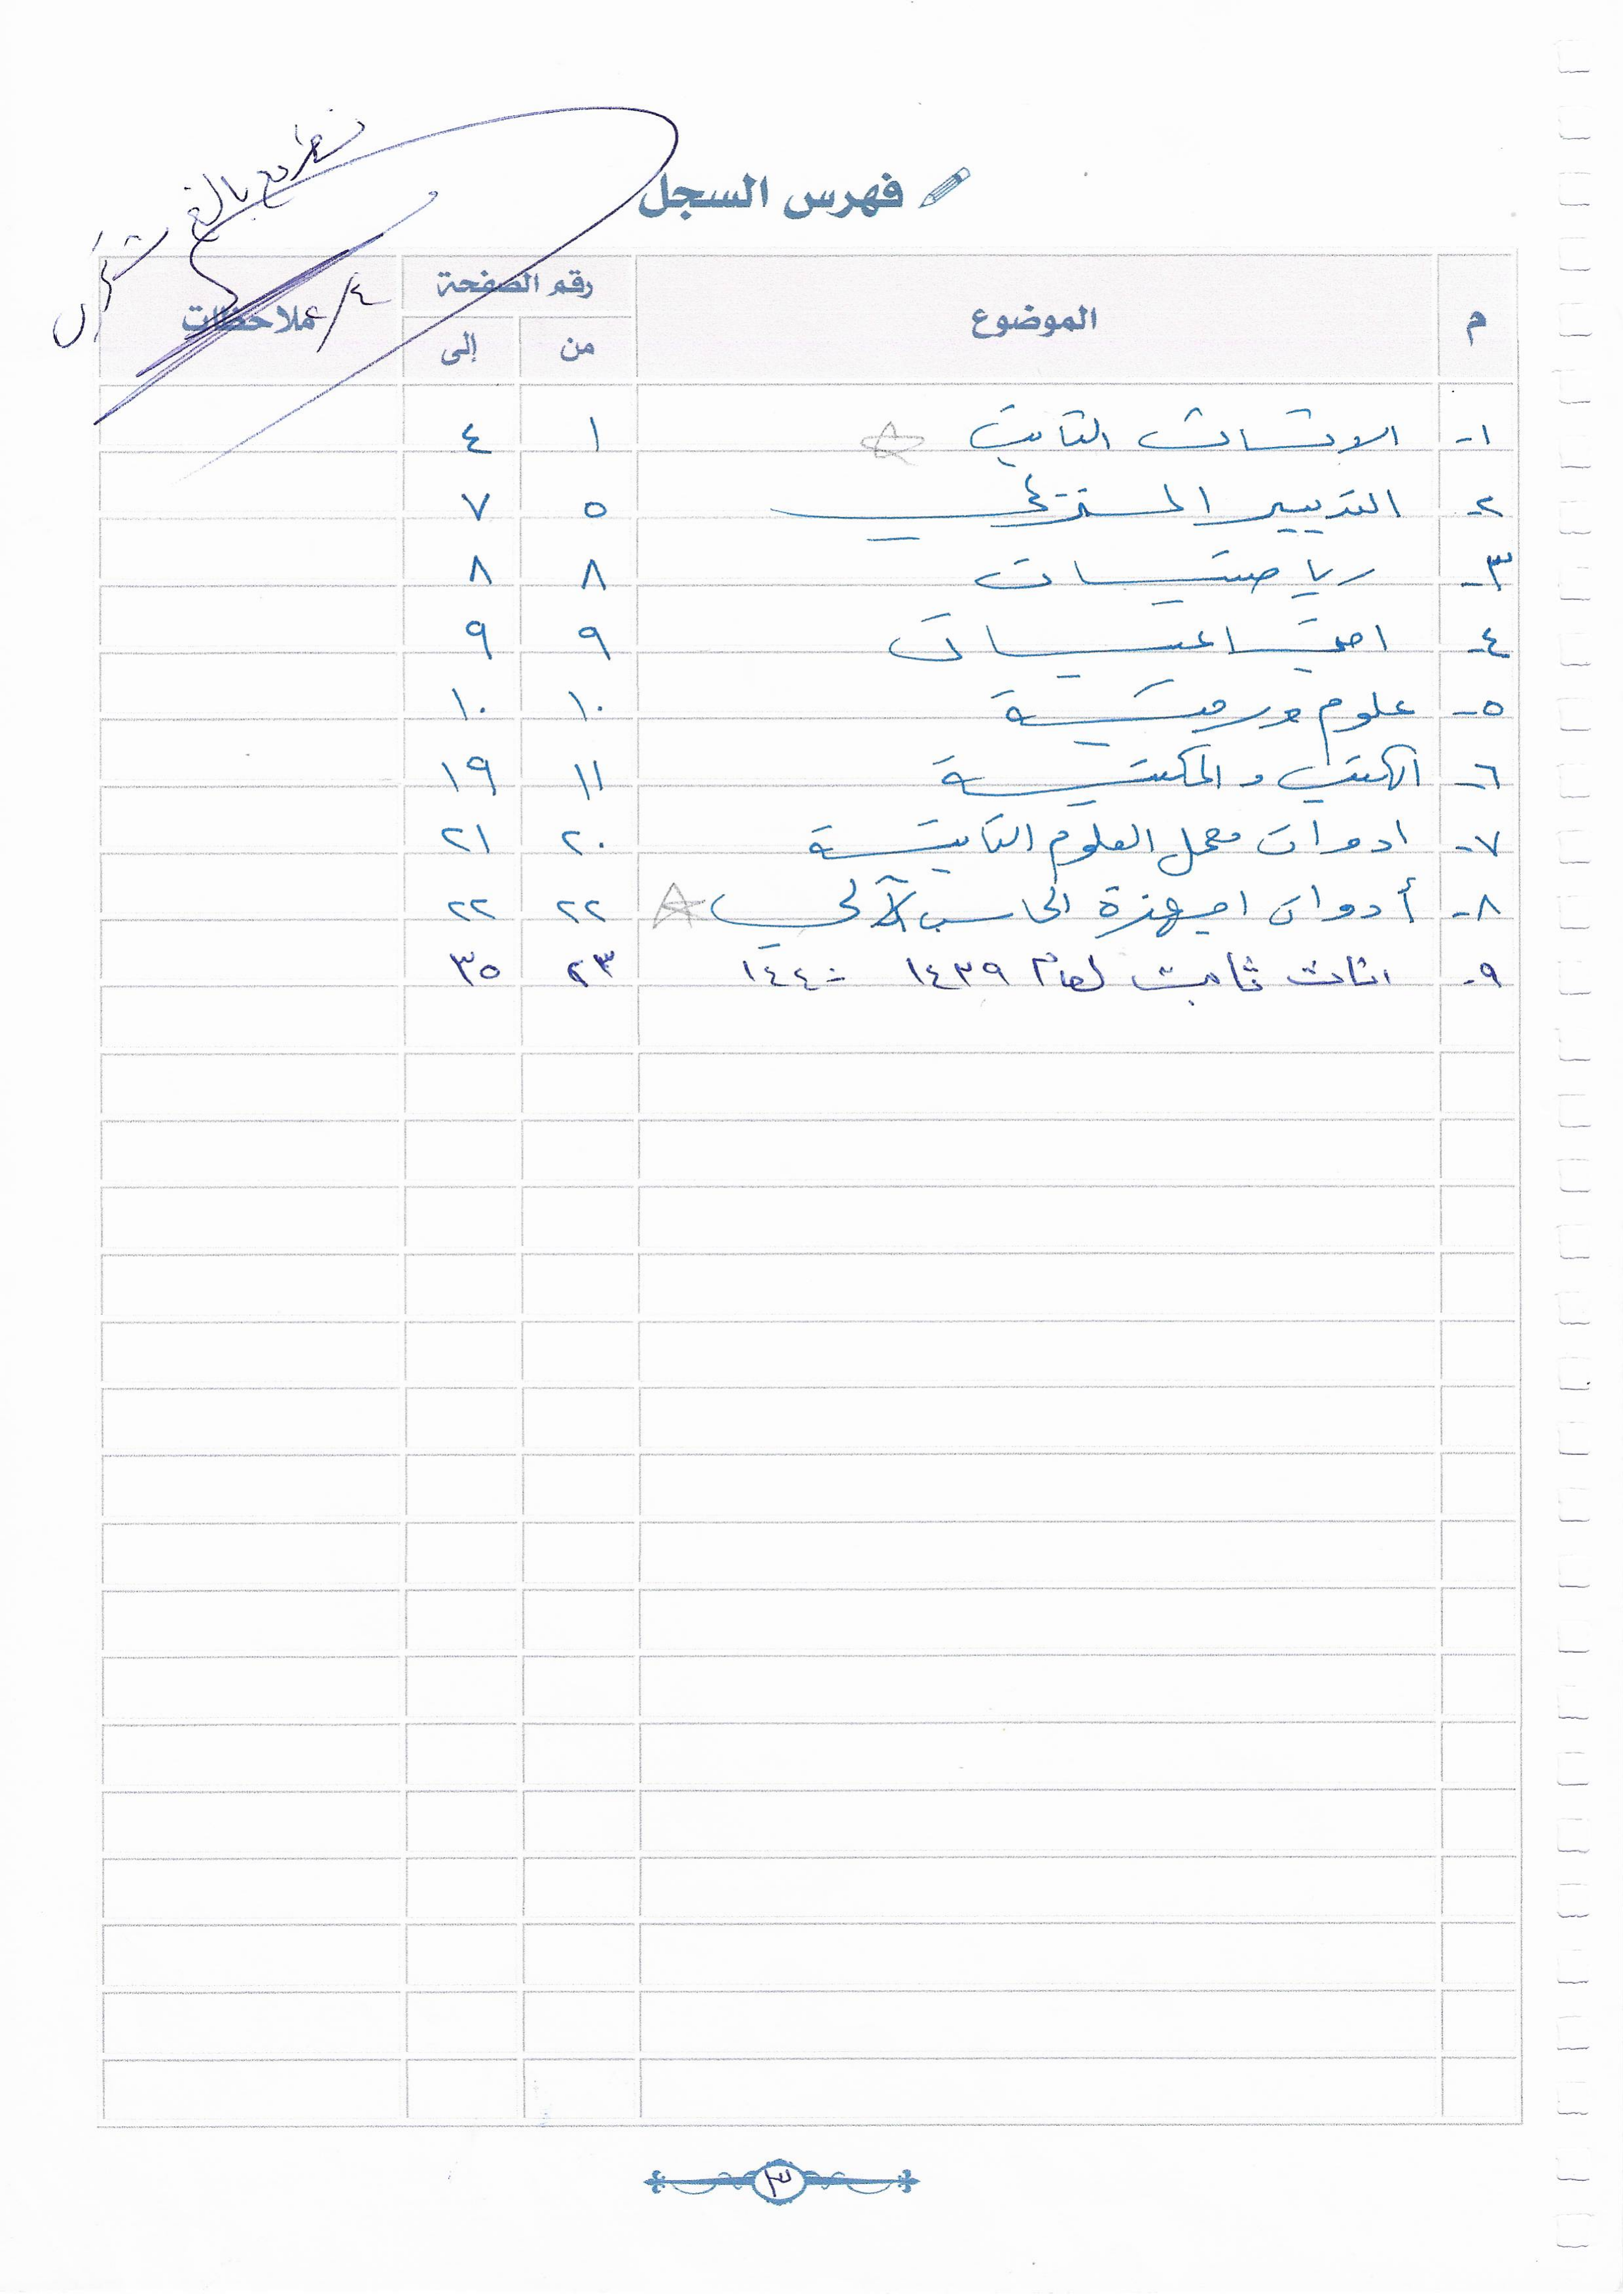 نظر مع بالغ شكري
٤/٤
فهرس السجل
م الموضوع رقم الصفحة ملاحظات
من إلى
١- الاثاث الثابت ١ ٤
٢- التدبير المنزلي ٥ ٧
٣- رياضيات ٨ ٨
٤- اجتماعيات ٩ ٩
٥- علوم ١٠ ١٠
٦- الكتب والمكتبة ١١ ١٩
٧- ادوات معمل العلوم الثابتة ٢٠ ٢١
٨- أدوات اجهزة الحاسب الآلي ٢٢ ٢٢
٩- اثاث ثابت لعام ١٤٣٩ - ١٤٤٠ ٢٣ ٣٥
٣